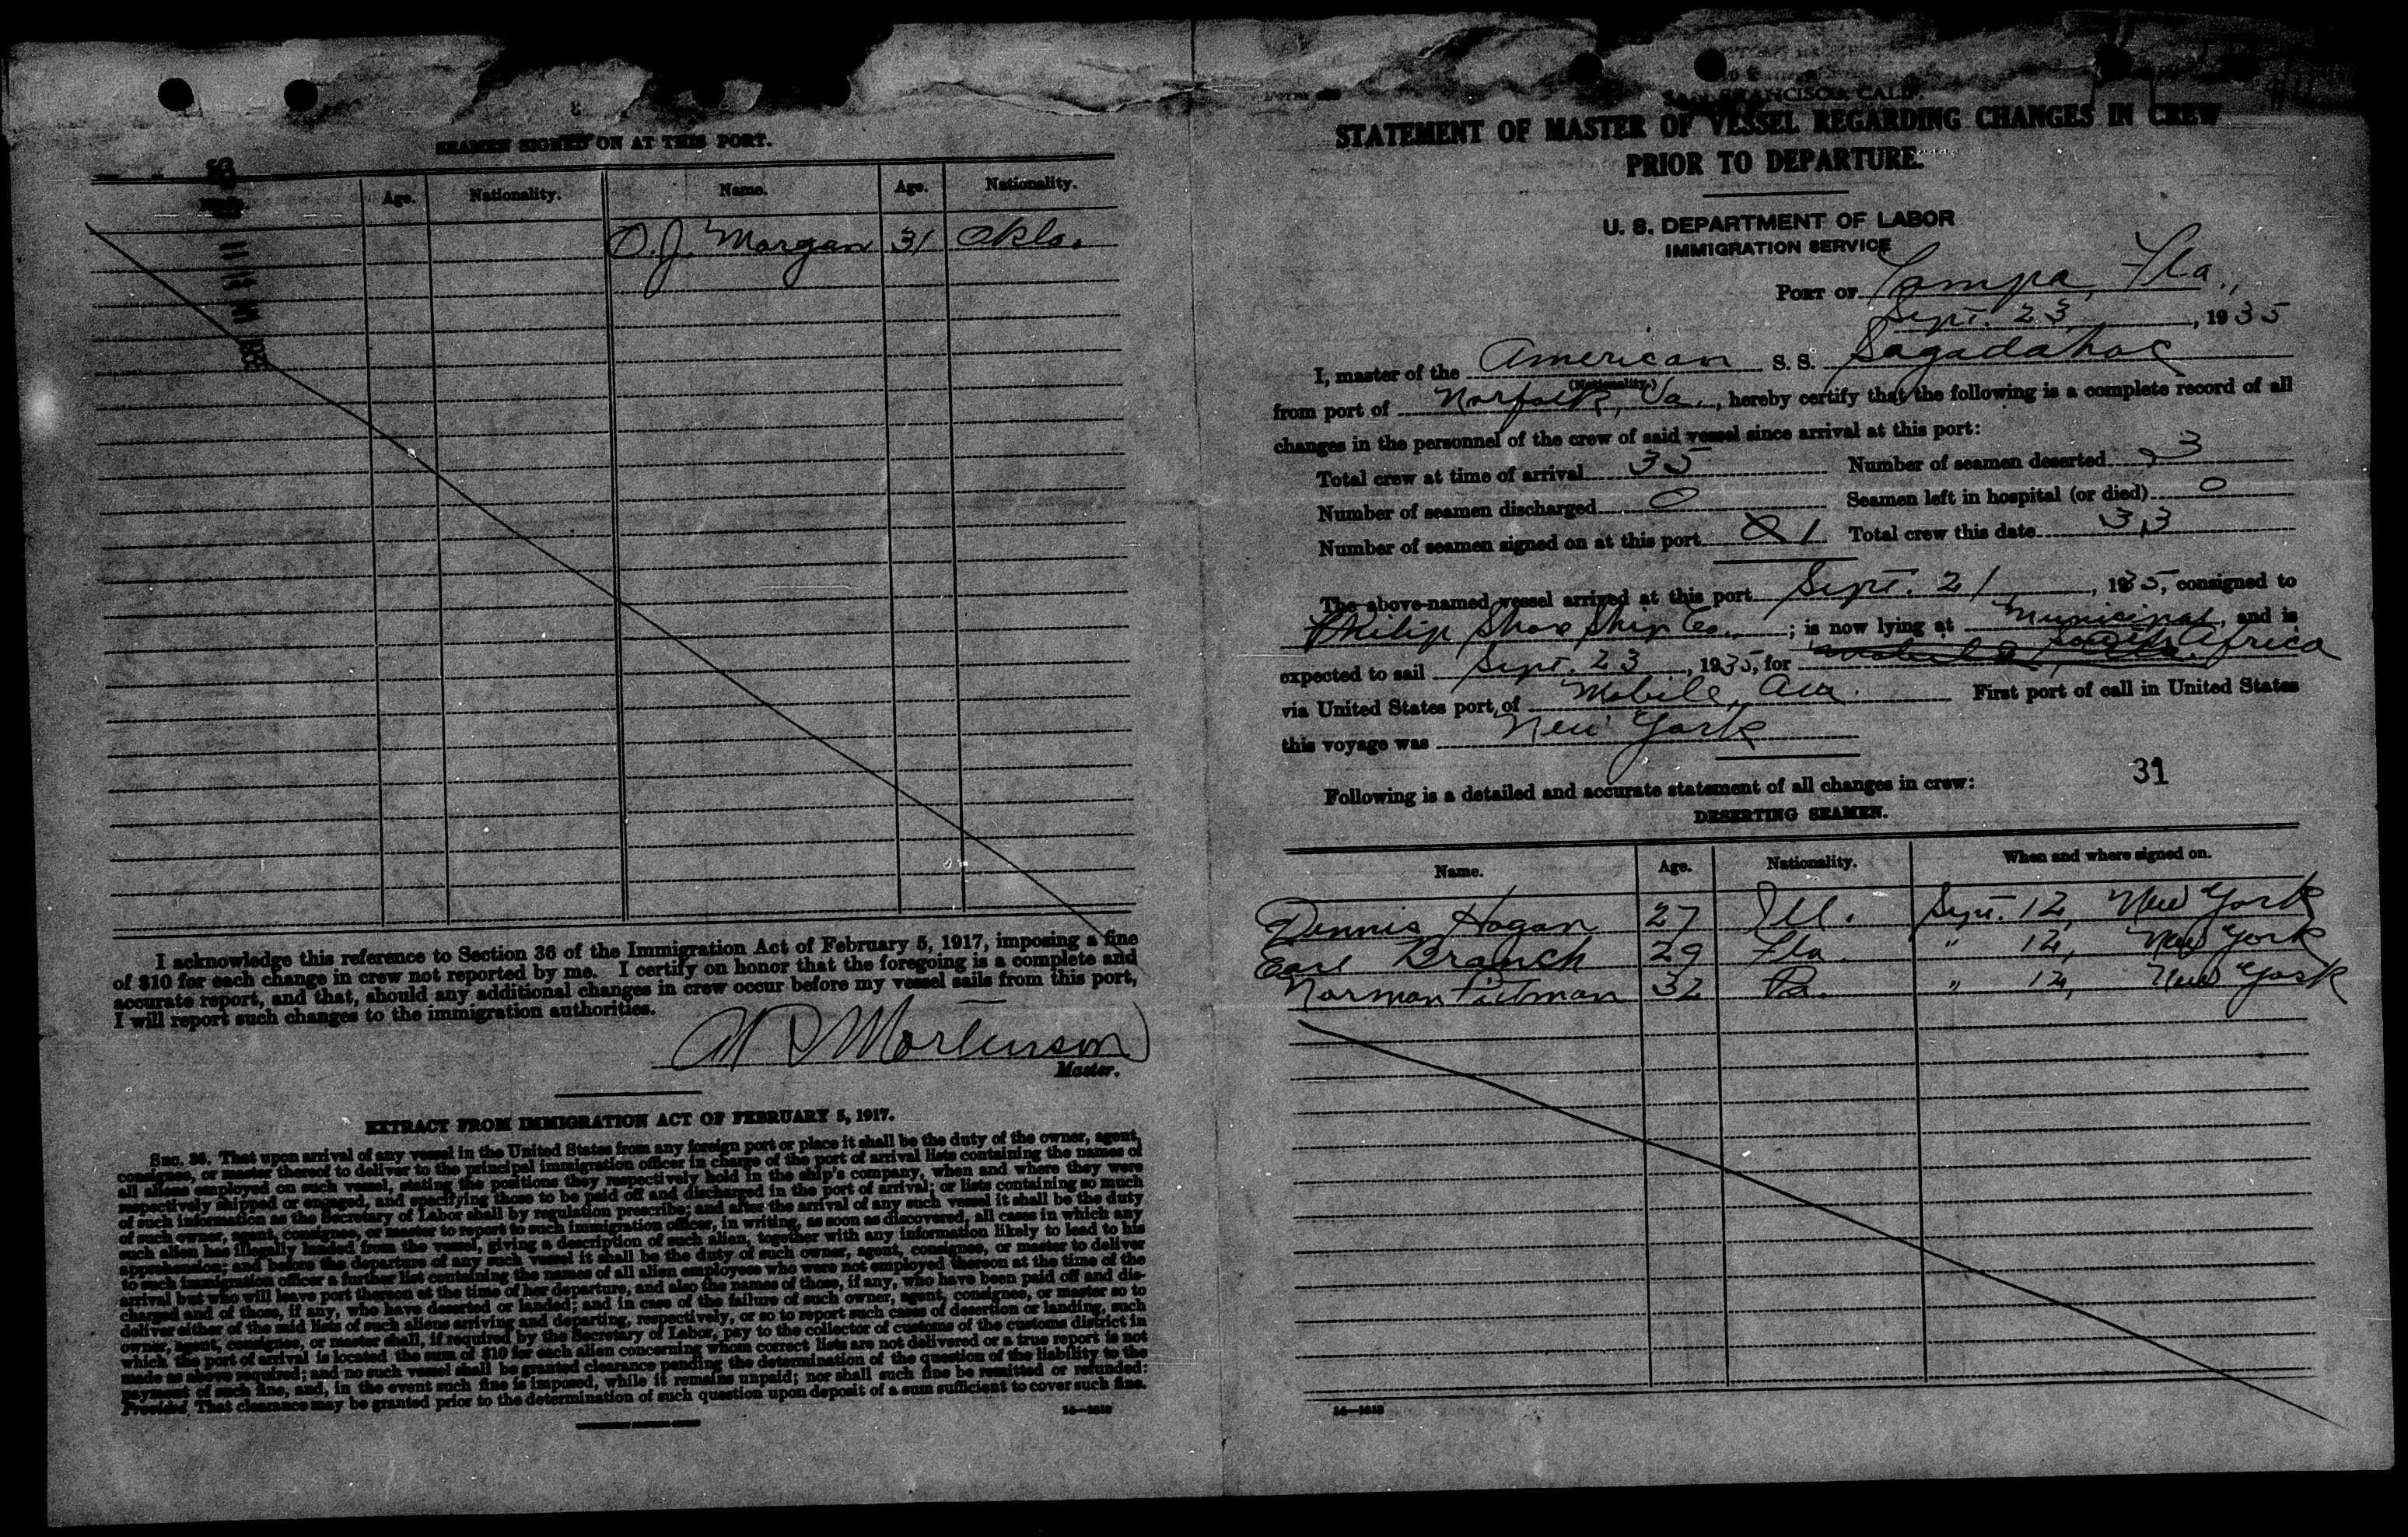 SEAMEN SIGNED ON AT THIS PORT.
Age. Nationality. Name. Age. Nationality.
O. J. Morgan 31 Okla.
I acknowledge this reference to Section 36 of the Immigration Act of February 5, 1917, imposing a fine
of $10 for each change in crew not reported by me. I certify on honor that the foregoing is a complete and
accurate report, and that, should any additional changes in crew occur before my vessel sails from this port,
I will report such changes to the immigration authorities.
Mortenson
Master.
EXTRACT FROM IMMIGRATION ACT OF FEBRUARY 5, 1917.
SEC. 36. That upon arrival of any vessel in the United States from any foreign port or place it shall be the duty of the owner, agent,
consignee, or master thereof to deliver to the principal immigration officer in charge of the port of arrival lists containing the names of
all aliens employed on such vessel, stating the positions they respectively hold in the ship's company, when and where they were
respectively shipped or engaged, and specifying those to be paid off and discharged in the port of arrival; or lists containing so much
of such information as the Secretary of Labor shall by regulation prescribe; and after the arrival of any such vessel it shall be the duty
of such owner, agent, consignee, or master to report to such immigration officer, in writing, as soon as discovered, all cases in which any
such alien has illegally landed from the vessel, giving a description of such alien, together with any information likely to lead to his
apprehension; and before the departure of any such vessel it shall be the duty of such owner, agent, consignee, or master to deliver
to such immigration officer a further list containing the names of all alien employees who were not employed thereon at the time of the
arrival but who will leave port thereon at the time of her departure, and also the names of those, if any, who have been paid off and dis-
charged and of those, if any, who have deserted or landed; and in case of the failure of such owner, agent, consignee, or master so to
deliver either of the said lists of such aliens arriving and departing, respectively, or so to report such cases of desertion or landing, such
owner, agent, consignee, or master shall, if required by the Secretary of Labor, pay to the collector of customs of the customs district in
which the port of arrival is located the sum of $10 for each alien concerning whom correct lists are not delivered or a true report is not
made as above required; and no such vessel shall be granted clearance pending the determination of the question of the liability to the
payment of such fine, and, in the event such fine is imposed, while it remains unpaid; nor shall such fine be remitted or refunded:
Provided, That clearance may be granted prior to the determination of such question upon deposit of a sum sufficient to cover such fine.
SAN FRANCISCO, CALIF.
STATEMENT OF MASTER OF VESSEL REGARDING CHANGES IN CREW
PRIOR TO DEPARTURE.
U. S. DEPARTMENT OF LABOR
IMMIGRATION SERVICE
PORT OF Tampa, Fla.,
Sept. 23, 1935
I, master of the American S. S. Sagadahoc
(Nationality.)
from port of Norfolk, Va., hereby certify that the following is a complete record of all
changes in the personnel of the crew of said vessel since arrival at this port:
Total crew at time of arrival 35 Number of seamen deserted 3
Number of seamen discharged 0 Seamen left in hospital (or died) 0
Number of seamen signed on at this port 1 Total crew this date 33
The above-named vessel arrived at this port Sept. 21, 1935, consigned to
Philip Shore Ship Co.; is now lying at Municipal, and is
expected to sail Sept. 23, 1935, for South Africa
via United States port of Mobile, Ala. First port of call in United States
this voyage was New York
31
Following is a detailed and accurate statement of all changes in crew:
DESERTING SEAMEN.
Name. Age. Nationality. When and where signed on.
Dennis Hogan 27 Ill. Sept. 12, New York
Earl Branch 29 Fla. " 12, New York
Norman Pitman 32 Pa. " 12, New York